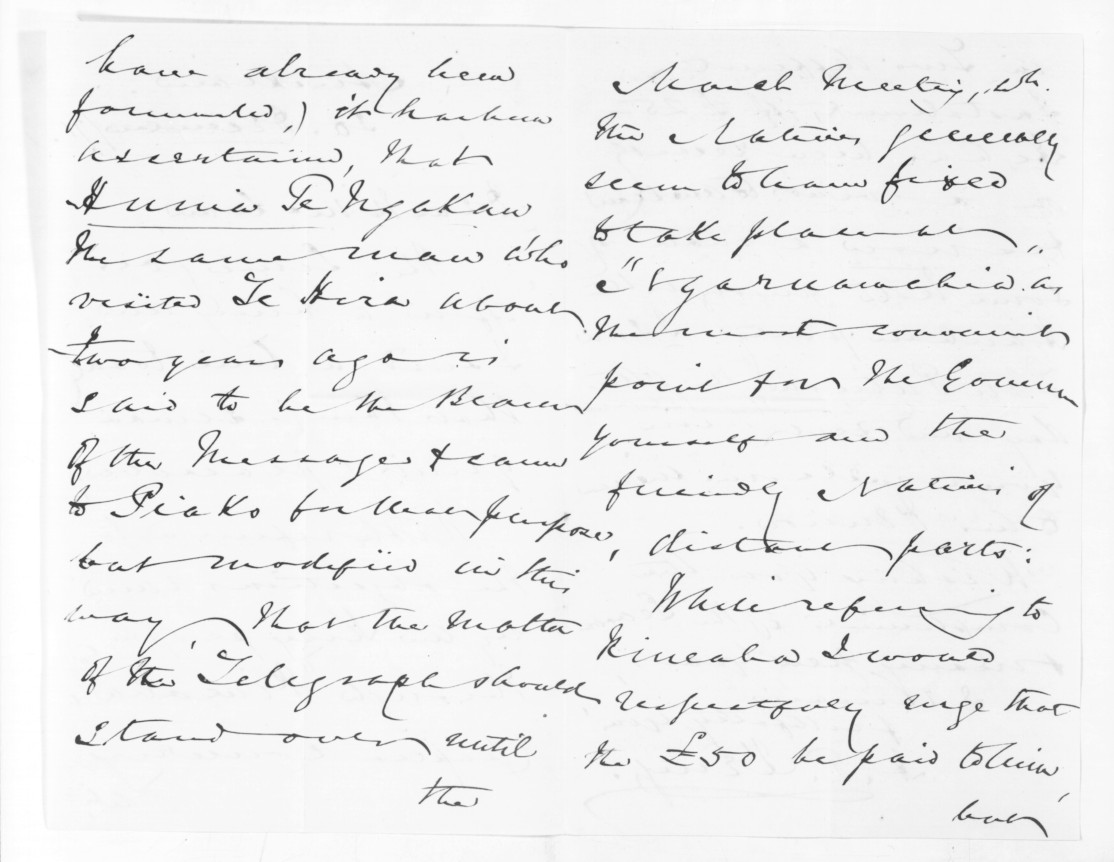 have already been
forwarded,) it has been
ascertained, that
Hunia Te Ngakau
the same man who
visited Te Hira about
two years ago is
said to be the Bearer
of the Message & came
to Piako for that purpose,
but modified in this
way, That the matter
of the Telegraph should
stand over until
the
March Meeting, wh.
the Natives generally
seem to have fixed
to take place at
"Ngaruawahia" as
the most convenient
point for the Governor
yourself and the
friendly Natives of
distant parts:
While referring to
I would
respectfully urge that
the £50 be paid to him,
but